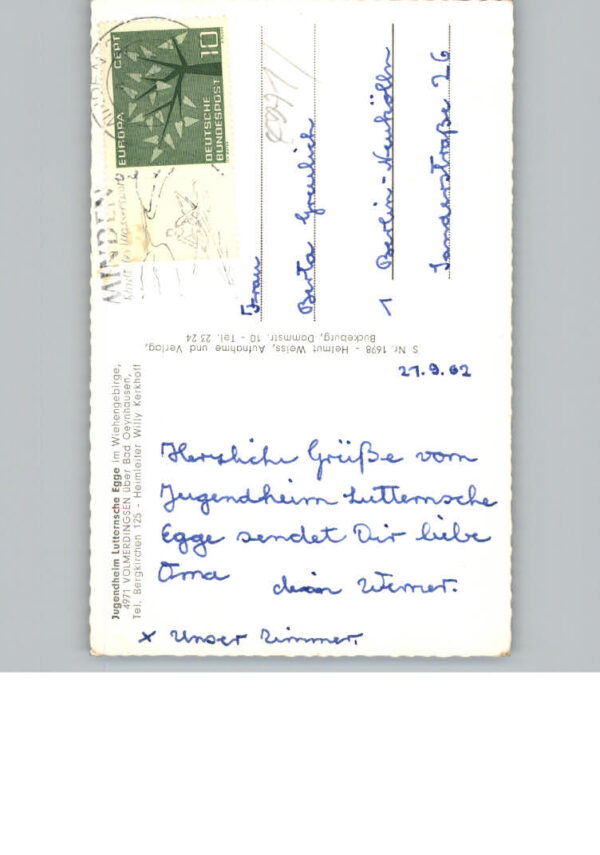 Jugendheim Lutternsche Egge im Wiehengebirge,
4971 VOLMERDINGSEN über Bad Oeynhausen,
Tel. Bergkirchen 125 - Heimleiter Willy Kerkhoff
27.9.62
Herzliche Grüße vom
Jugendheim Lutternsche
Egge sendet Dir liebe
Oma
dein Werner.
x Unser Zimmer.
S Nr. 1698 - Helmut Weiss, Aufnahme und Verlag,
Bückeburg, Dammstr. 10 - Tel. 23 24
MINDEN
EUROPA CEPT
10
DEUTSCHE
BUNDESPOST
Frau
Berta Greulich
1 Berlin-Neukölln
Sanderstraße 26